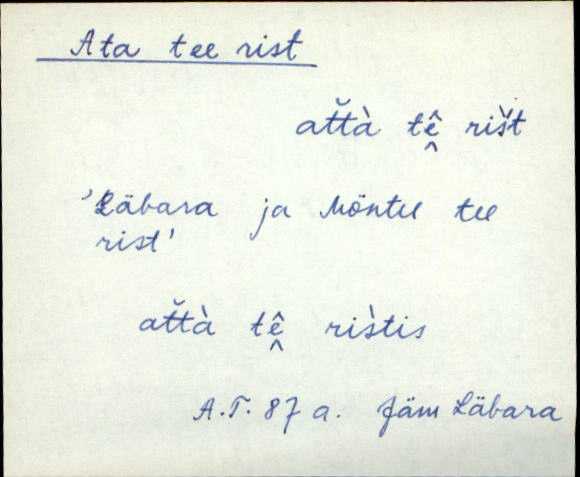 Ata tee rist
at̆tà tê̬ rišt
'Läbara ja Mõntu tee
rist'
at̆tà tê̬ rìstis
A.T. 87 a. Jäm Läbara